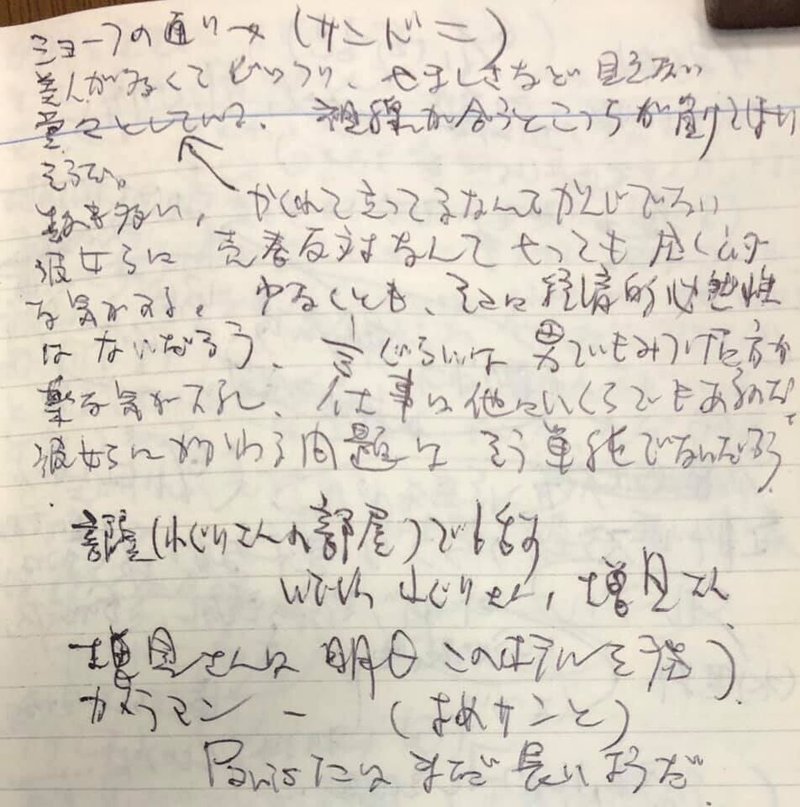 ショーフの通り→(サンドニ)
美人が多くてびっくり、やましさなど見えない
堂々としている。視線が合うとこっちが負けてしまい
そうだ。
数も多い、かくれて立ってるなんてかんじでない
彼女らに売春反対なんて云っても届く
な気がする。少なくとも、そこに経済的必然性
はないだろう、男でもみつけた方が
楽な気がするし、仕事は他にいくらでもあるのだ
彼女らにかかわる問題はそう単純でないだろう
部屋(の部屋)で話す
with さん、増見さん
増見さんは明日このホテルを発つ
カメラマン ー (サンと)
Parisにはまだ長いようだ